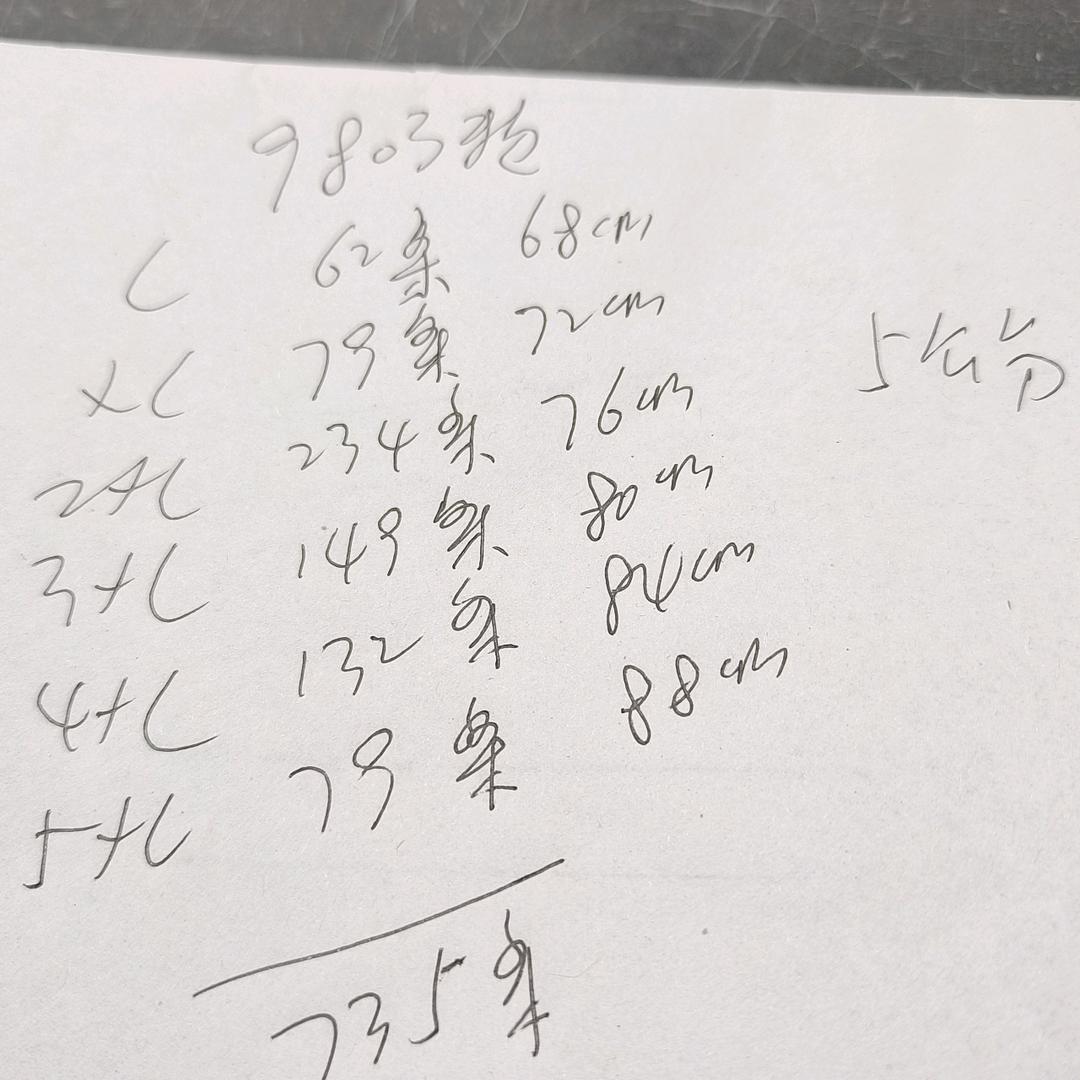 9803
L 62条 68cm
XL 79条 72cm
2XL 234条 76cm
3XL 149条 80cm
4XL 132条 84cm
5XL 79条 88cm
5公分
735条